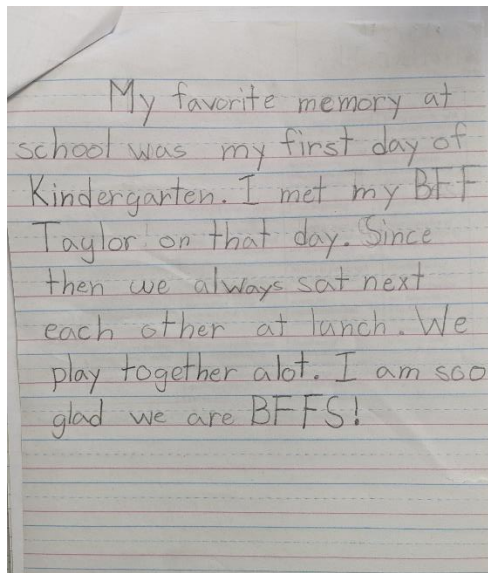 My favorite memory at
school was my first day of
Kindergarten. I met my BFF
Taylor on that day. Since
then we always sat next
each other at lunch. We
play together alot. I am soo
glad we are BFFS!